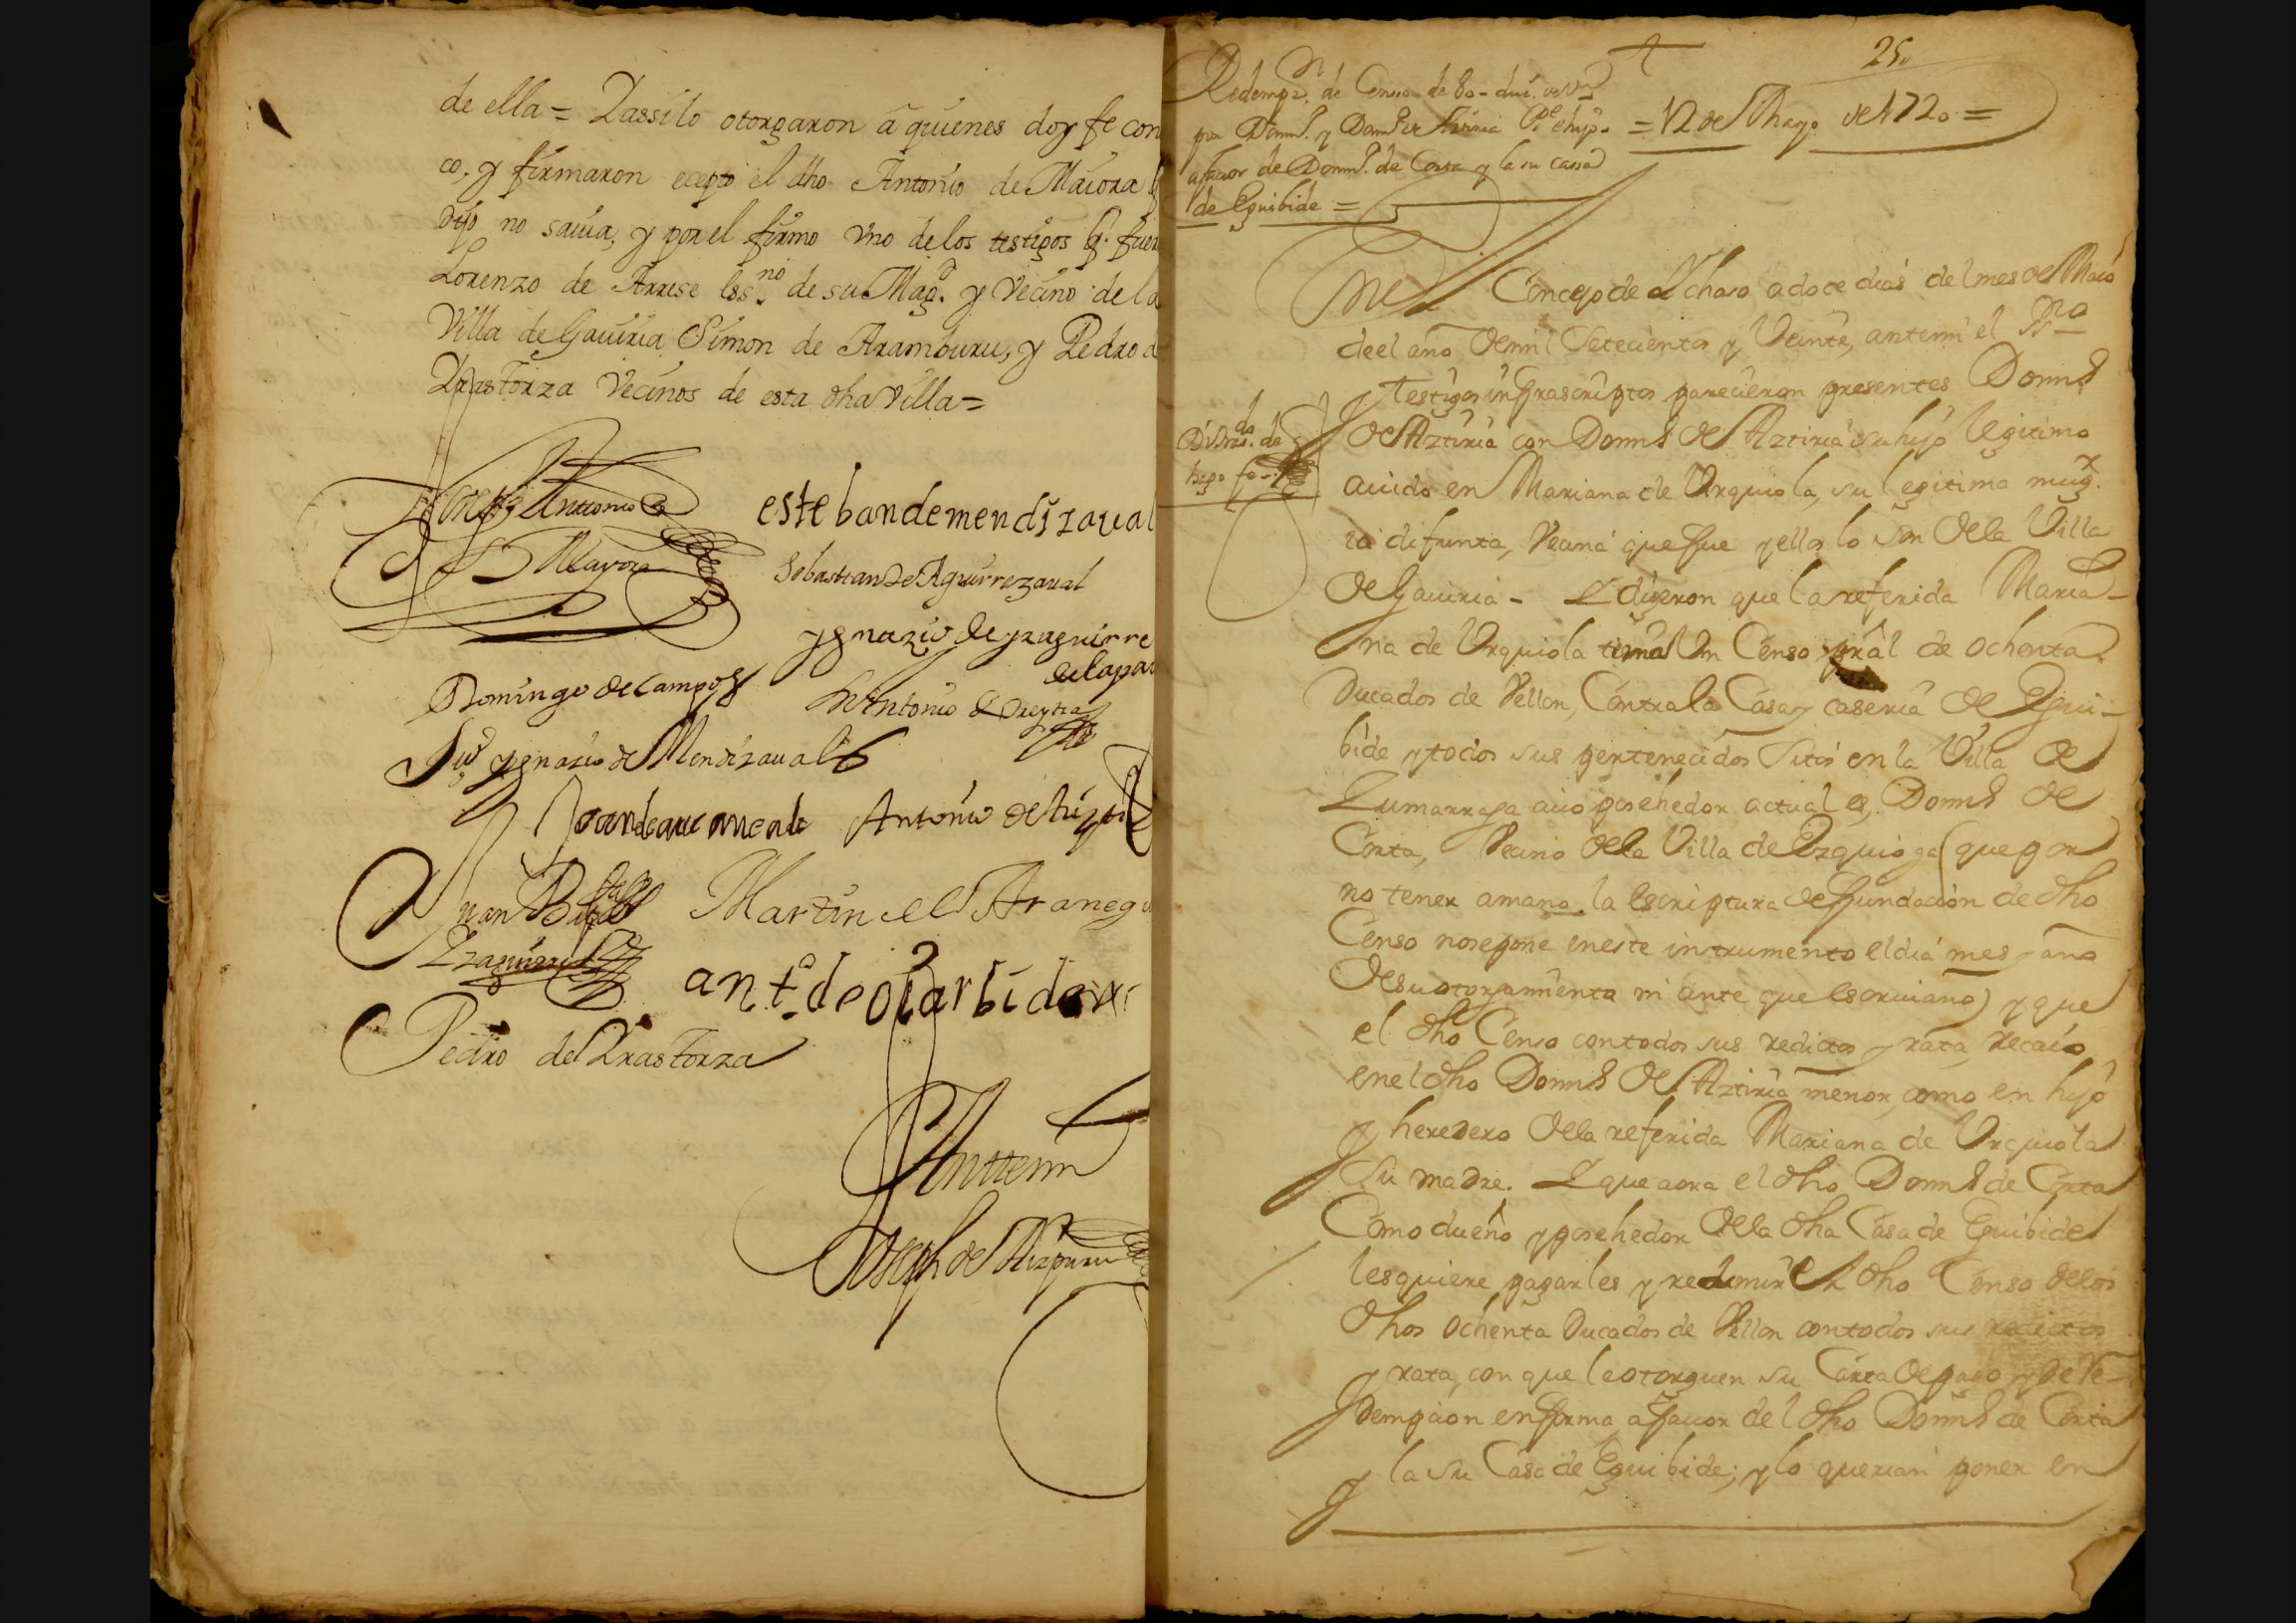 de ella = Y assi lo otorgaron a quienes doy fe con
co, y firmaron ecepto el dho Antonio de Maiora q
dijo no sauia, y por el firmo vno de los testigos q. fuer
Lorenzo de Arrese ess.no de su Mag.d y Vecino de la
Villa de Gauiria Simon de Aramburu, y Pedro d
Vrastorza Vecinos de esta dha Villa =
Antonio
Mayora
esteban de mendizaual
Sebastian de Aguirrezaual
ygnazio de yzaguirre
Domingo de Campos
Antonio
ygnazio de Mendizaual
Antonio de
Juan
Martin de Aranegu
Yzaguirre
ant.o de olarbide
Pedro de Vrastorza
Antemi
Joseph de Aizpuru
25
Redempz.n de Censo de 80 - duc.s de Vn
por Dom.s y Dom.s de Aztiria P.e e hijo -
a fauor de Dom.s de Corta y la su cassa
de Eguibide =
= 12 de Mayo de 1720 =
En el Concejo de Ychaso a doce dias del mes de Maio
de el año de mil Setecientos y Veinte, ante mi el ss.no
y testigos infrascriptos parecieron presentes Dom.s
de Aztiria con Dom.s de Aztiria su hijo legitimo
auido en Mariana de Vrquiola, su legitima mug.r
ia difunta, Vecina que fue y ellos lo son de la Villa
de Gauiria - Y dijeron que la referida Maria-
na de Vrquiola tenia Vn Censo pral de ochenta
Ducados de Vellon, Contra la Casa y caseria de Egui-
bide y todos sus pertenecidos Sitos en la Villa de
Zumarraga cuio posehedor actual es, Dom.s de
Corta, Vecino de la Villa de Ezquioga (que por
no tener a mano la escriptura de fundacion de dho
Censo no se pone en este instrumento el dia mes y año
de su otorgamiento ni ante que escriuano) y que
el dho Censo con todos sus reditos y rata, recaio
en el dho Dom.s de Aztiria menor, como en hijo
y heredero de la referida Mariana de Vrquiola
su madre. Y que aora el dho Dom.s de Corta
Como dueño y posehedor de la dha Casa de Eguibide
les quiere pagarles y redimir el dho Censo de los
dhos ochenta Ducados de Vellon con todos sus reditos
y rata, con que le otorguen su Carta de pago y de re-
dempcion en forma a fauor del dho Dom.s de Corta
y la su Casa de Eguibide; y lo querian poner en
hago fe